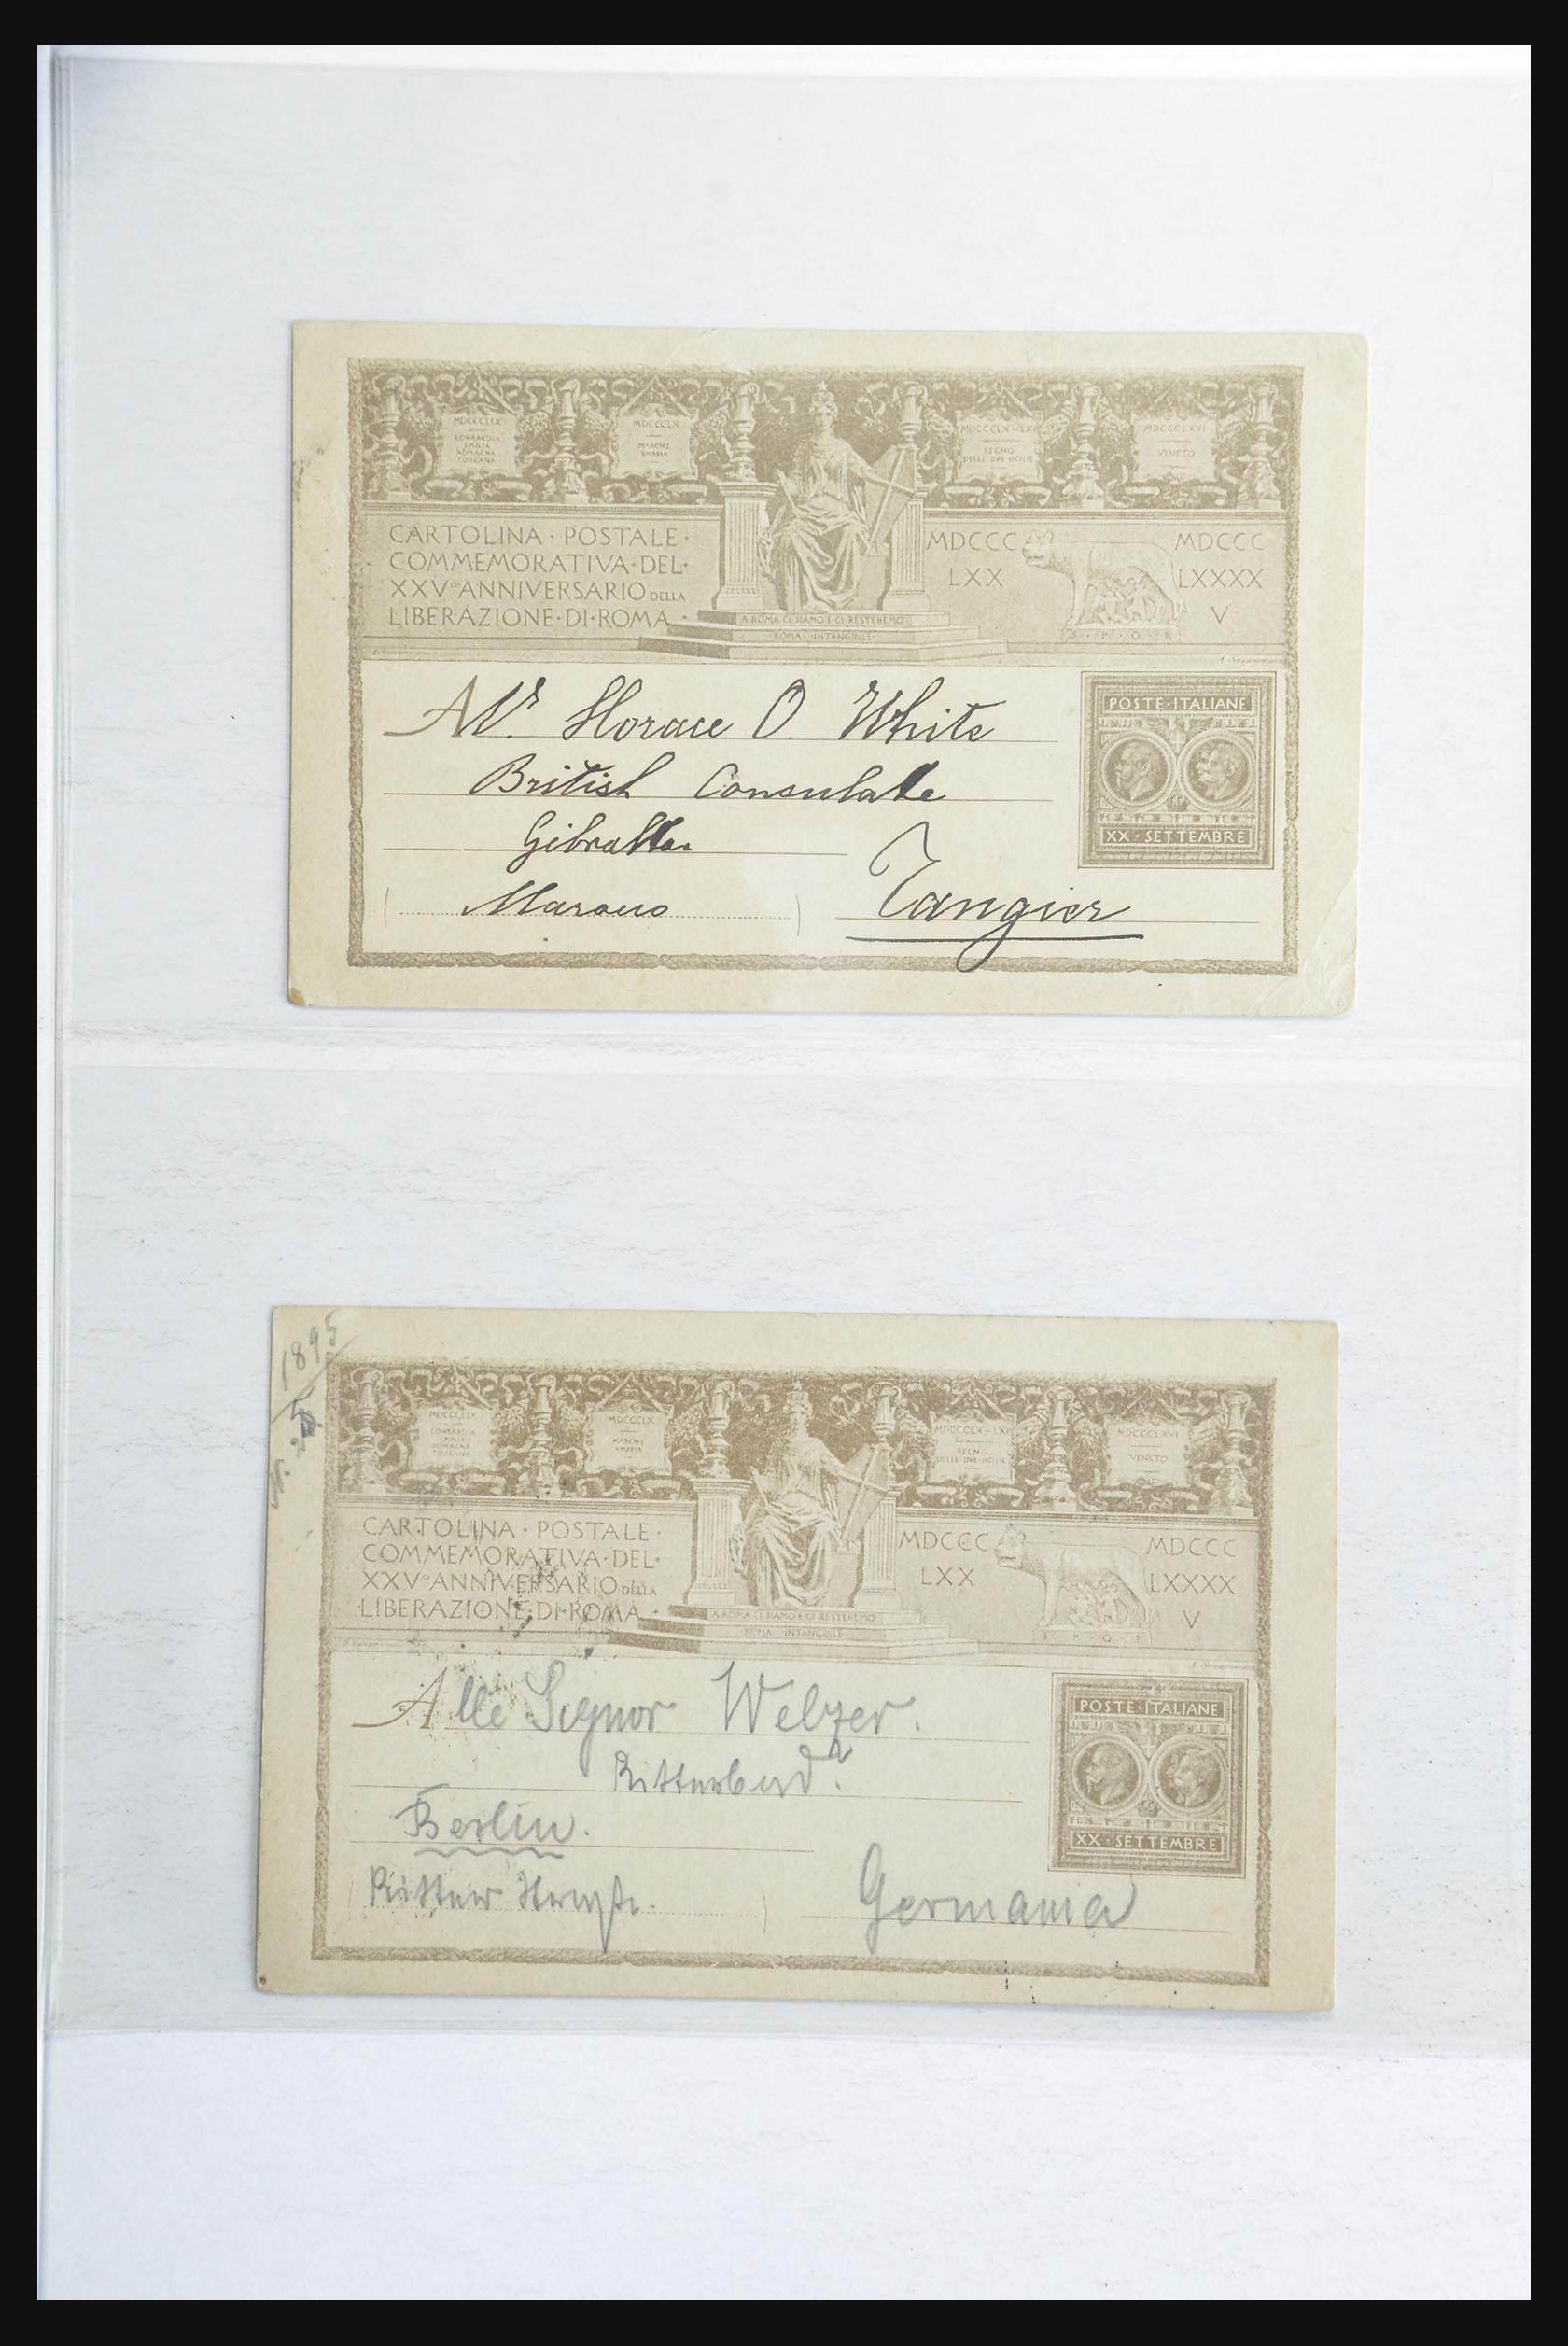 MDCCCLIX
LOMBARDIA
EMILIA
ROMAGNA
TOSCANA
MDCCCLX
MARCHE
UMBRIA
MDCCCLX-LXI
REGNO
DELLE·DVE·SICILIE
MDCCCLXVI
VENETO
CARTOLINA · POSTALE ·
COMMEMORATIVA · DEL ·
XXV° ANNIVERSARIO DELLA
LIBERAZIONE · DI · ROMA ·
MDCCC
LXX
MDCCC
LXXXX
V
A ROMA CI SIAMO E CI RESTEREMO
ROMA INTANGIBILE
S · P · Q · R
A Mr. Horace O. White
British Consulate
Gibraltar
Marocco
Tangier
POSTE · ITALIANE
XX · SETTEMBRE
1895
MDCCCLIX
LOMBARDIA
EMILIA
ROMAGNA
TOSCANA
MDCCCLX
MARCHE
UMBRIA
MDCCCLX-LXI
REGNO
DELLE·DVE·SICILIE
MDCCCLXVI
VENETO
CARTOLINA · POSTALE ·
COMMEMORATIVA · DEL ·
XXV° ANNIVERSARIO DELLA
LIBERAZIONE · DI · ROMA ·
MDCCC
LXX
MDCCC
LXXXX
V
A ROMA CI SIAMO E CI RESTEREMO
ROMA INTANGIBILE
S · P · Q · R
Alle Signor Welzer.
Berlin.
Germania
POSTE · ITALIANE
XX · SETTEMBRE